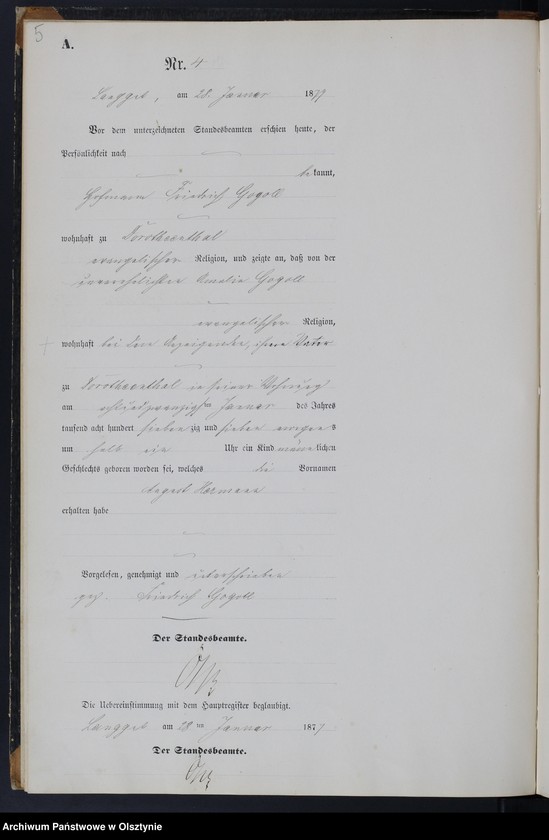 5
A.
Nr. 4
Langgut, am 28. Januar 1877
Vor dem unterzeichneten Standesbeamten erschien heute, der
Persönlichkeit nach
bekannt,
Friedrich Gogoll
wohnhaft zu Dorotheenthal
evangelischer Religion, und zeigte an, daß von der
unverehelichten Amalie Gogoll
evangelischer Religion,
wohnhaft bei dem Anzeigenden, ihrem Vater
zu Dorotheenthal in seiner Wohnung
am ten Januar des Jahres
tausend acht hundert siebenzig und sieben morgens
um halb ein Uhr ein Kind männlichen
Geschlechts geboren worden sei, welches die Vornamen
August Hermann
erhalten habe
Vorgelesen, genehmigt und unterschrieben
gez. Friedrich Gogoll
Der Standesbeamte.
Die Uebereinstimmung mit dem Hauptregister beglaubigt.
Langgut am 28ten Januar 1877
Der Standesbeamte.
Archiwum Państwowe w Olsztynie